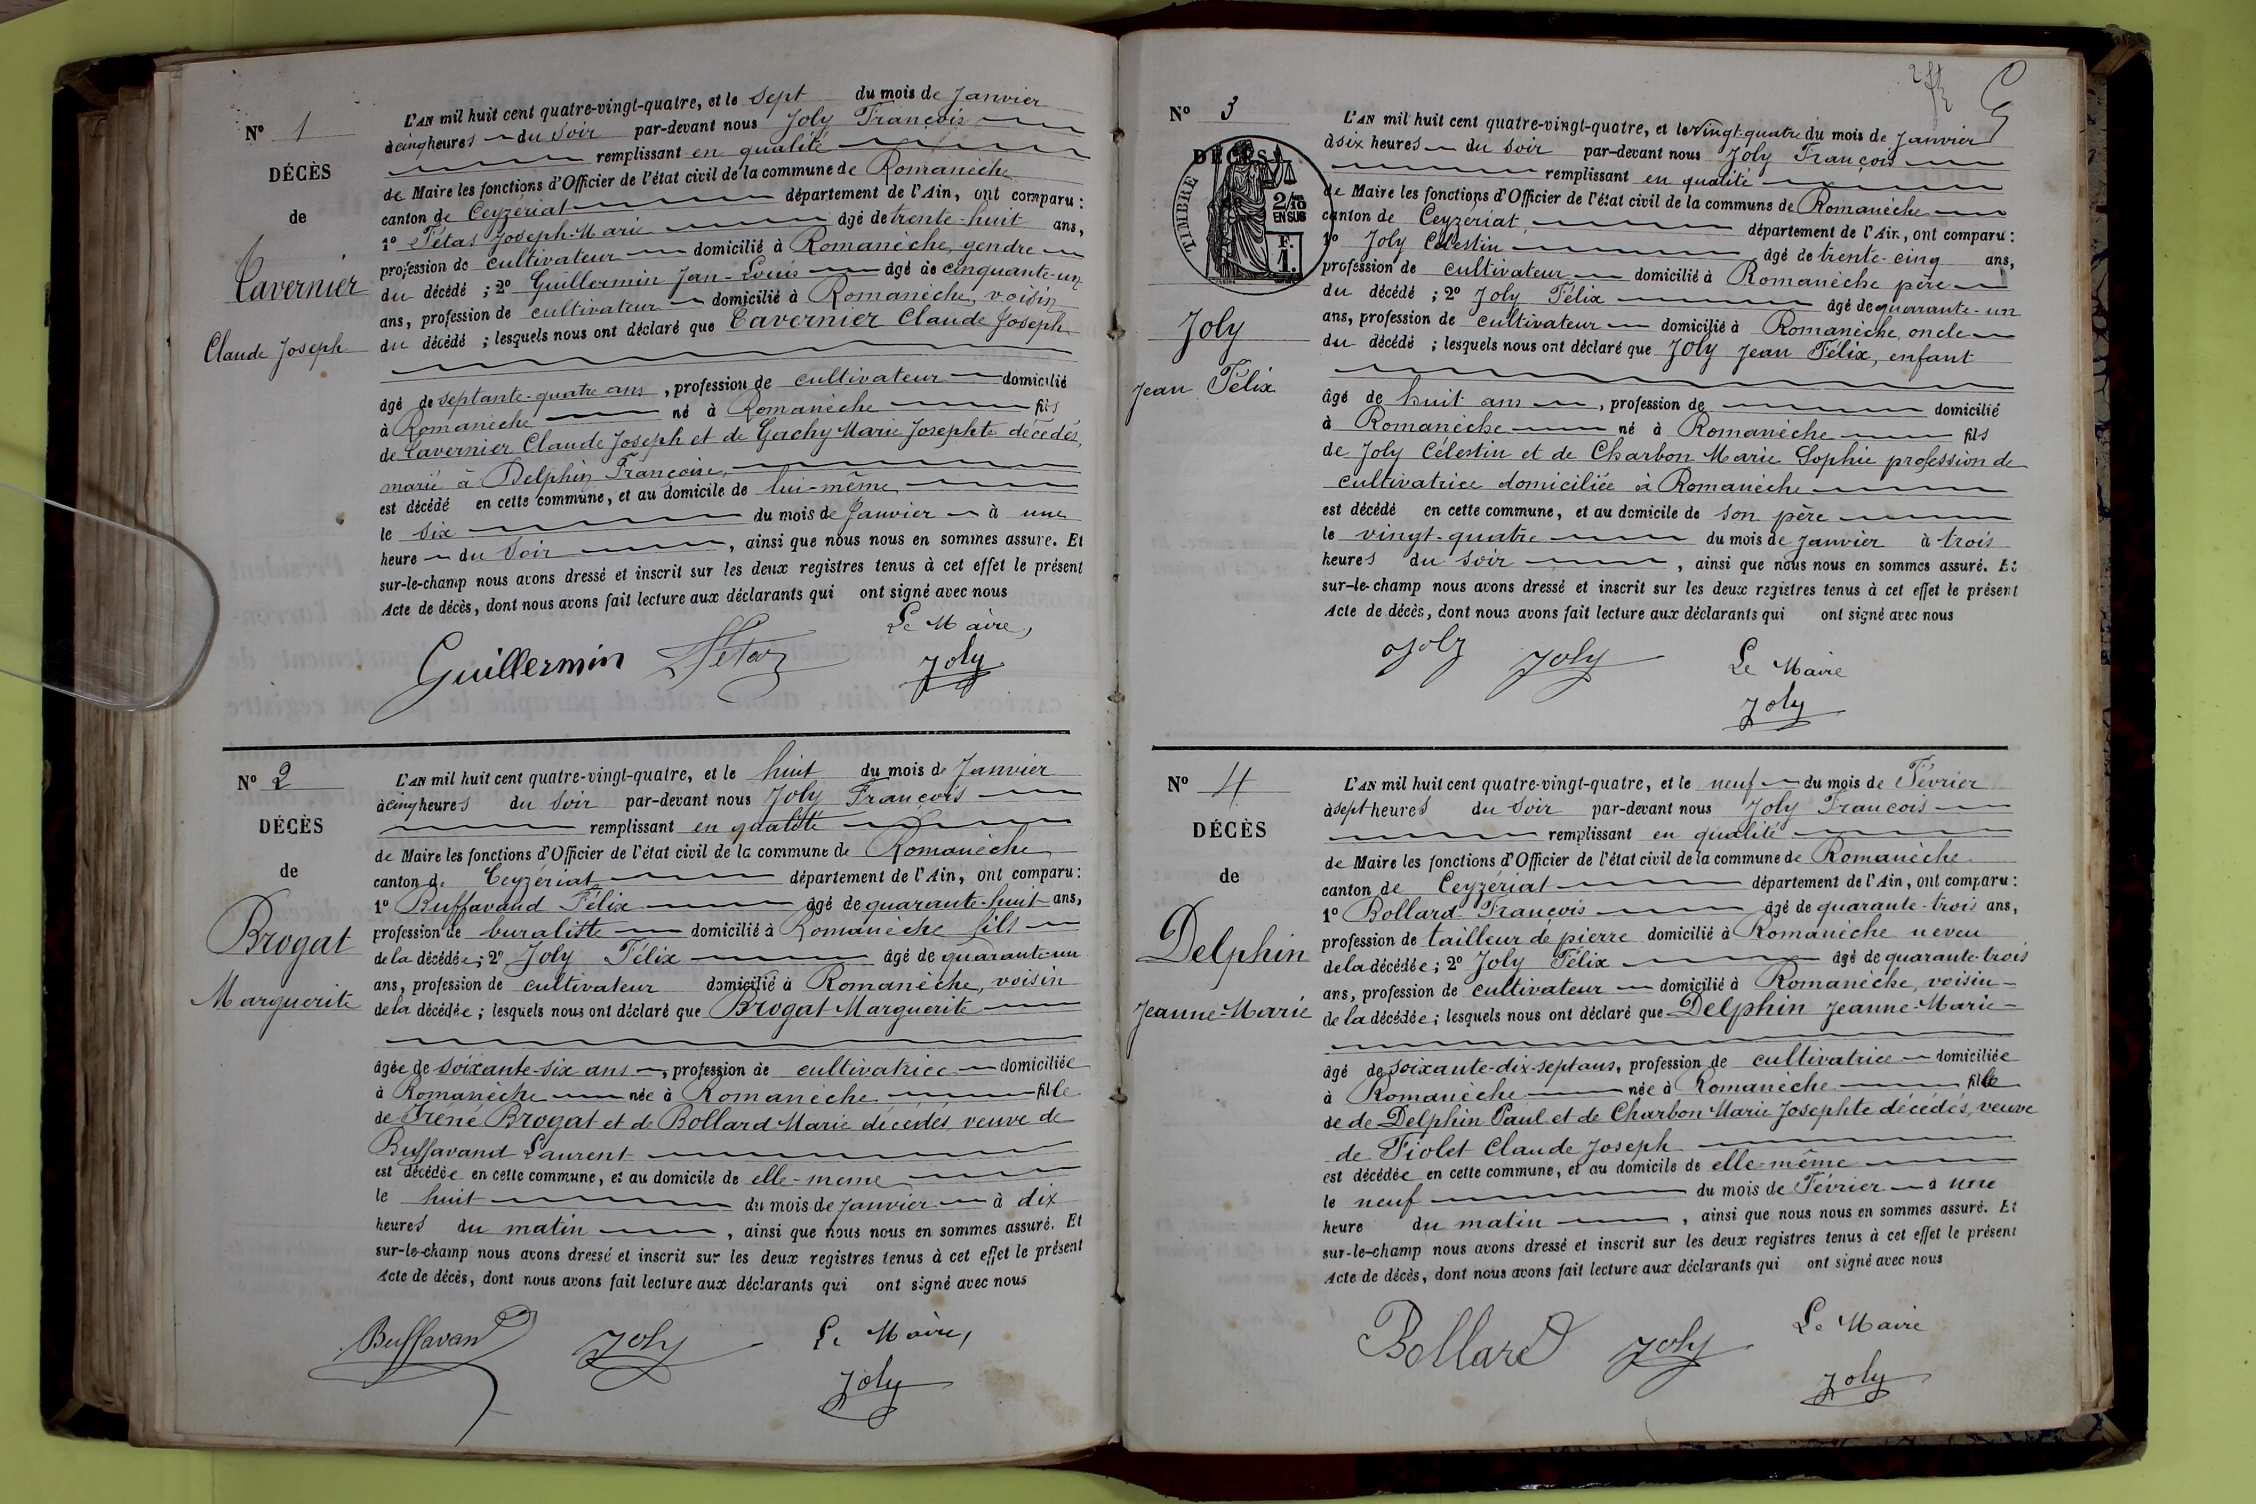 N° 1
DÉCÈS
de
Tavernier
Claude Joseph
L'AN mil huit cent quatre-vingt-quatre, et le sept du mois de Janvier
à cinq heures du soir par-devant nous Joly François
remplissant en qualité
de Maire les fonctions d'Officier de l'état civil de la commune de Romanèche
canton de Ceyzériat département de l'Ain, ont comparu :
1° Fétas Joseph-Marie âgé de trente-huit ans,
profession de cultivateur domicilié à Romanèche, gendre
du décédé ; 2° Guillermin Jan-Louis âgé de cinquante-un
ans, profession de cultivateur domicilié à Romanèche, voisin
du décédé ; lesquels nous ont déclaré que Tavernier Claude Joseph
âgé de septante-quatre ans, profession de cultivateur domicilié
à Romanèche né à Romanèche fils
de Tavernier Claude Joseph et de Gachy Marie Josephte décédés,
marié à Delphin Françoise
est décédé en cette commune, et au domicile de lui-même
le six du mois de Janvier à une
heure du soir, ainsi que nous nous en sommes assuré. Et
sur-le-champ nous avons dressé et inscrit sur les deux registres tenus à cet effet le présent
Acte de décès, dont nous avons fait lecture aux déclarants qui ont signé avec nous
Le Maire,
Guillermin Fétaz Joly
N° 2
DÉCÈS
de
Brogat
Marguerite
L'AN mil huit cent quatre-vingt-quatre, et le huit du mois de Janvier
à cinq heures du soir par-devant nous Joly François
remplissant en qualité
de Maire les fonctions d'Officier de l'état civil de la commune de Romanèche
canton de Ceyzériat département de l'Ain, ont comparu :
1° Buffavand Félix âgé de quarante-huit ans,
profession de buraliste domicilié à Romanèche fils
de la décédée ; 2° Joly Félix âgé de quarante-un
ans, profession de cultivateur domicilié à Romanèche, voisin
de la décédée ; lesquels nous ont déclaré que Brogat Marguerite
âgée de soixante-six ans, profession de cultivatrice domiciliée
à Romanèche née à Romanèche fille
de Iréné Brogat et de Bollard Marie décédés, veuve de
Buffavand Laurent
est décédée en cette commune, et au domicile de elle-meme
le huit du mois de Janvier à dix
heures du matin, ainsi que nous nous en sommes assuré. Et
sur-le-champ nous avons dressé et inscrit sur les deux registres tenus à cet effet le présent
Acte de décès, dont nous avons fait lecture aux déclarants qui ont signé avec nous
Le Maire,
Buffavand Joly
Joly
N° 3
DÉCÈS
TIMBRE
2/10 EN SUS
F. 1.
Joly
Jean Félix
L'AN mil huit cent quatre-vingt-quatre, et le vingt-quatre du mois de Janvier
à six heures du soir par-devant nous Joly François
remplissant en qualité
de Maire les fonctions d'Officier de l'état civil de la commune de Romanèche
canton de Ceyzeriat département de l'Ain, ont comparu :
1° Joly Célestin âgé de trente-cinq ans,
profession de cultivateur domicilié à Romanèche père
du décédé ; 2° Joly Félix âgé de quarante-un
ans, profession de cultivateur domicilié à Romanèche, oncle
du décédé ; lesquels nous ont déclaré que Joly Jean Félix, enfant
âgé de huit ans, profession de domicilié
à Romanèche né à Romanèche fils
de Joly Célestin et de Charbon Marie Sophie profession de
cultivatrice domiciliée à Romanèche
est décédé en cette commune, et au domicile de son père
le vingt-quatre du mois de Janvier à trois
heures du soir, ainsi que nous nous en sommes assuré. Et
sur-le-champ nous avons dressé et inscrit sur les deux registres tenus à cet effet le présent
Acte de décès, dont nous avons fait lecture aux déclarants qui ont signé avec nous
Joly Joly Le Maire
Joly
N° 4
DÉCÈS
de
Delphin
Jeanne-Marie
L'AN mil huit cent quatre-vingt-quatre, et le neuf du mois de Février
à sept heures du soir par-devant nous Joly François
remplissant en qualité
de Maire les fonctions d'Officier de l'état civil de la commune de Romanèche
canton de Ceyzériat département de l'Ain, ont comparu :
1° Bollard François âgé de quarante-trois ans,
profession de tailleur de pierre domicilié à Romanèche neveu
de la décédée ; 2° Joly Félix âgé de quarante-trois
ans, profession de cultivateur domicilié à Romanèche, voisin
de la décédée ; lesquels nous ont déclaré que Delphin Jeanne-Marie
âgé de soixante-dix-sept ans, profession de cultivatrice domiciliée
à Romanèche née à Romanèche fille
de de Delphin Paul et de Charbon Marie Josephte décédés, veuve
de Fiolet Claude Joseph
est décédée en cette commune, et au domicile de elle-même
le neuf du mois de Février à une
heure du matin, ainsi que nous nous en sommes assuré. Et
sur-le-champ nous avons dressé et inscrit sur les deux registres tenus à cet effet le présent
Acte de décès, dont nous avons fait lecture aux déclarants qui ont signé avec nous
Le Maire
Bollard Joly
Joly